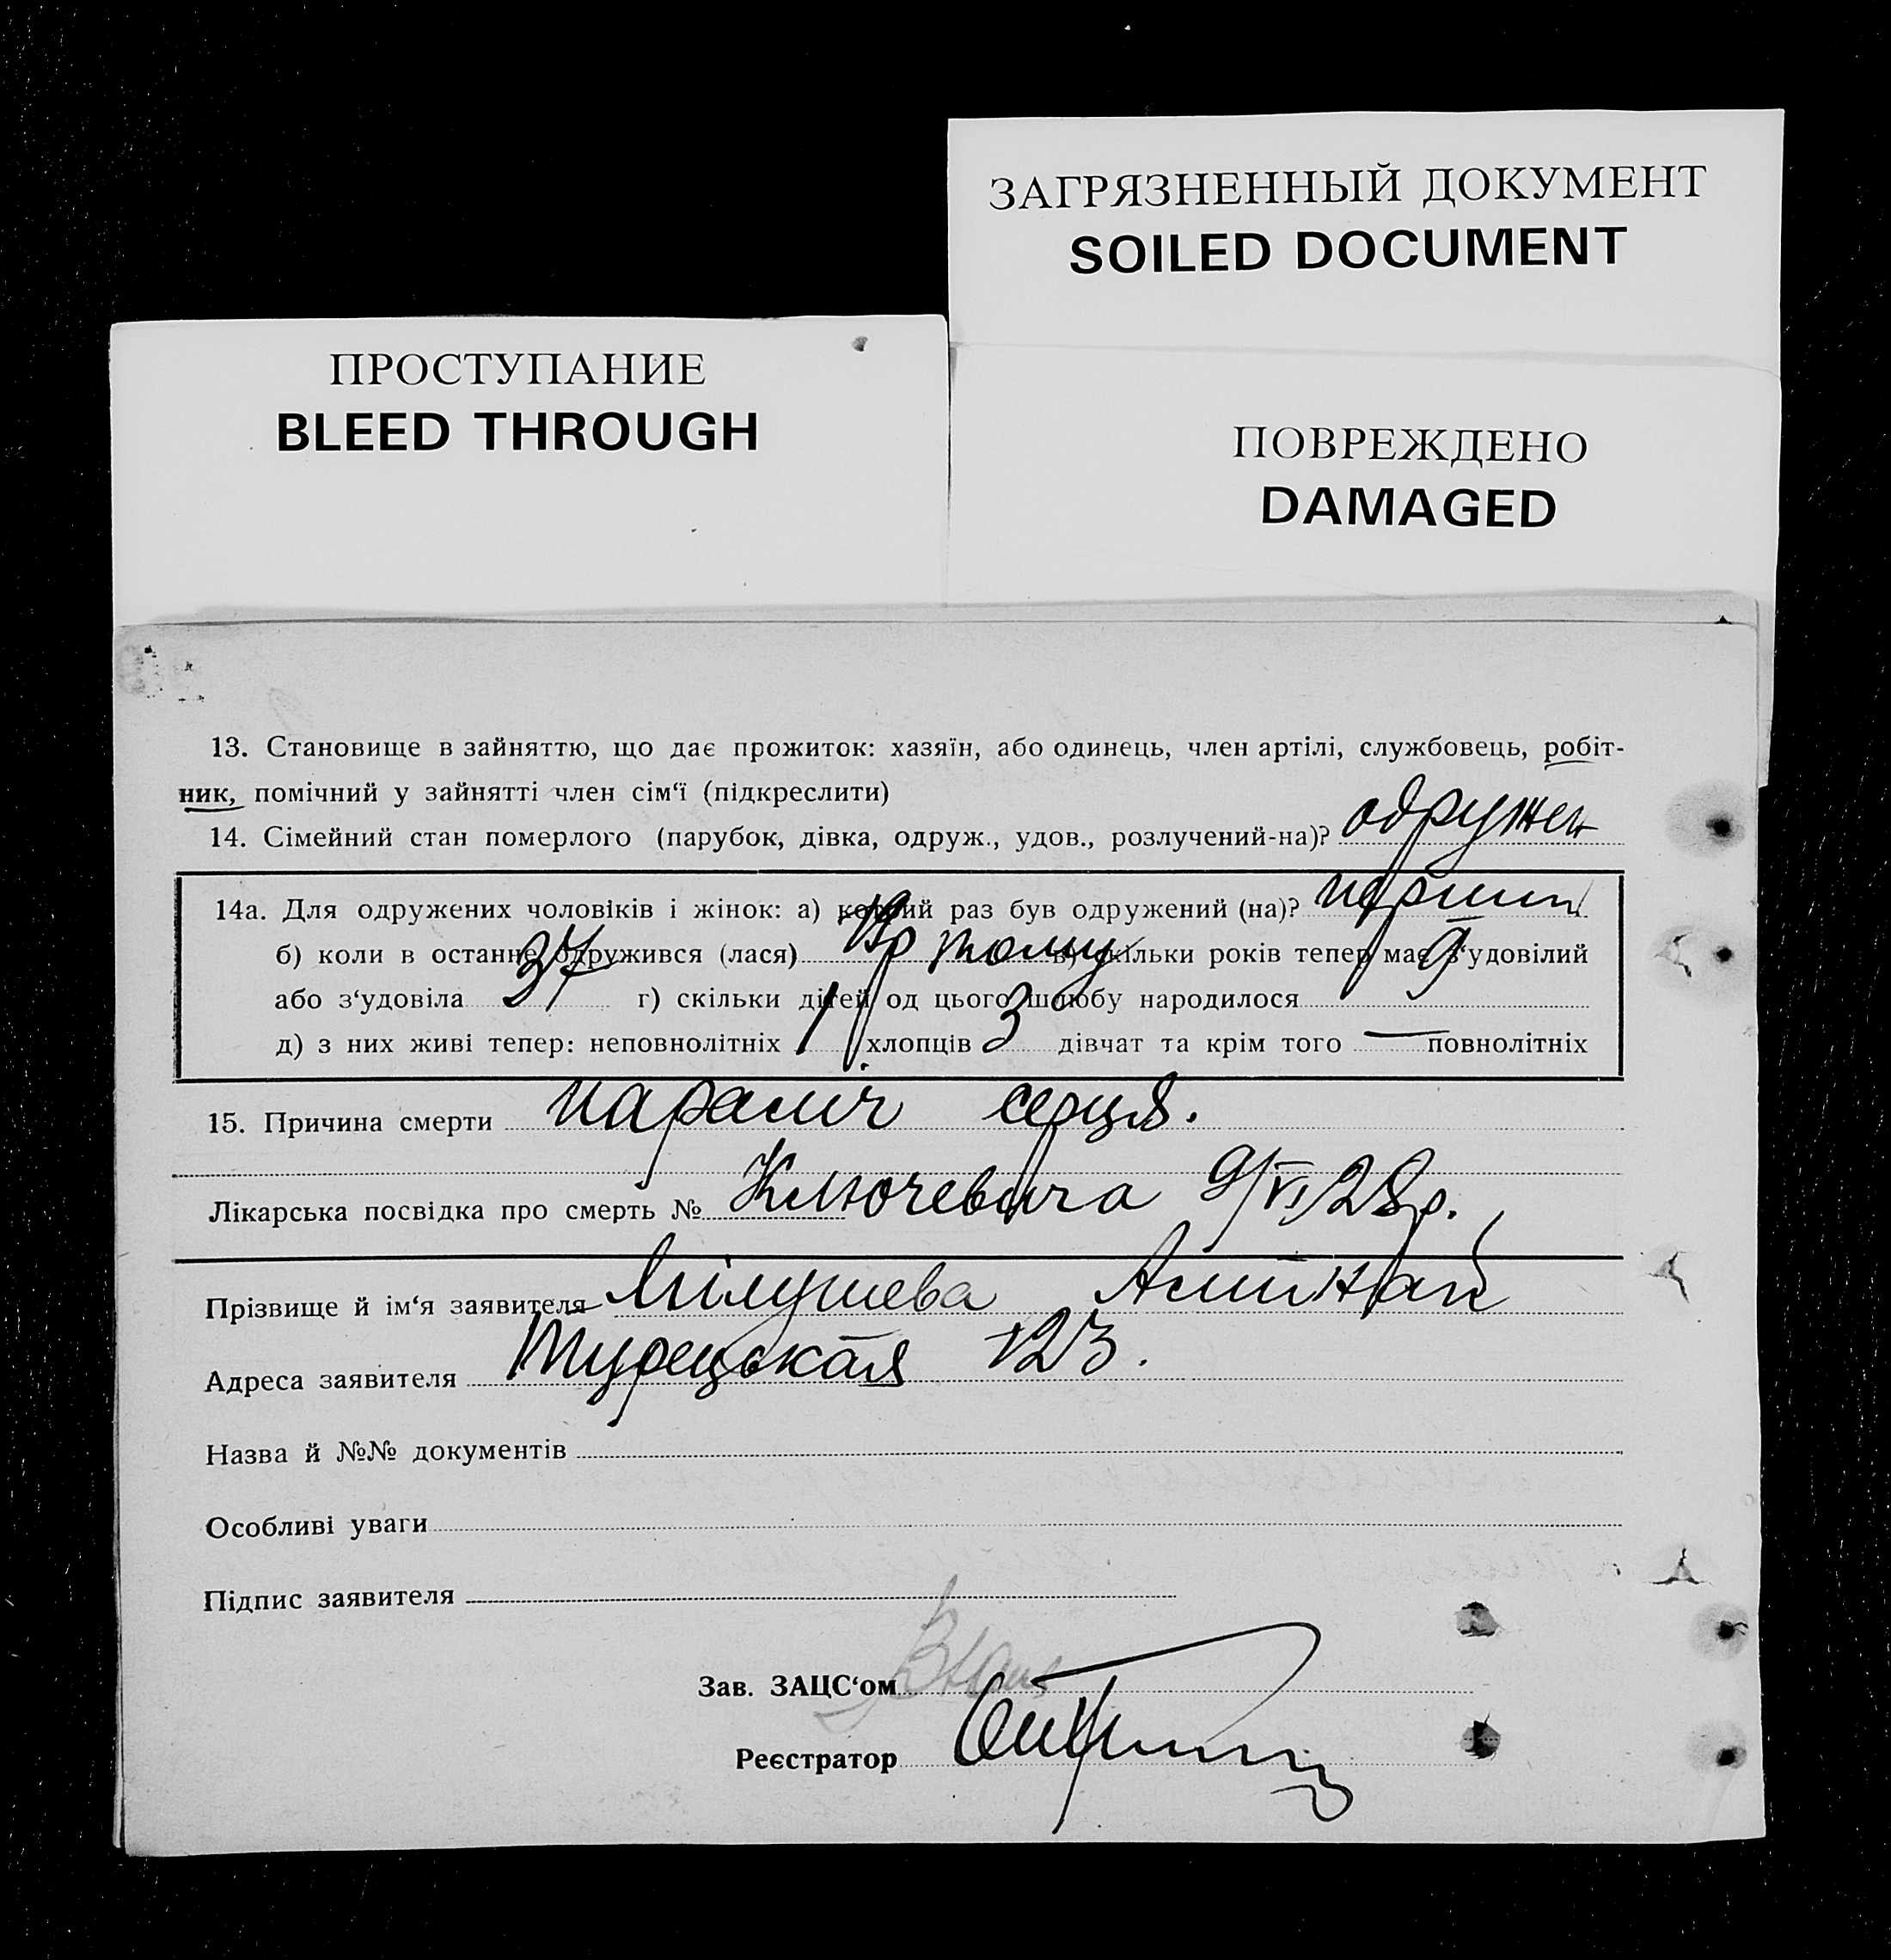 ЗАГРЯЗНЕННЫЙ ДОКУМЕНТ
SOILED DOCUMENT
ПРОСТУПАНИЕ
BLEED THROUGH
ПОВРЕЖДЕНО
DAMAGED
13. Становище в зайняттю, що дає прожиток: хазяїн, або одинець, член артілі, службовець, робіт-
ник, помічний у зайнятті член сім‘ї (підкреслити)
14. Сімейний стан померлого (парубок, дівка, одруж., удов., розлучений-на)? одружен
14а. Для одружених чоловіків і жінок: а) котрий раз був одружений (на)?
б) коли в останнє одружився (лася) тому в) скільки років тепер має з‘удовілий
або з‘удовіла 37 г) скільки дітей од цього шлюбу народилося 9
д) з них живі тепер: неповнолітніх 1 хлопців 3 дівчат та крім того — повнолітніх
15. Причина смерти параліч серця.
Лікарська посвідка про смерть № Ключевича 9/VI 28 р.
Прізвище й ім‘я заявителя
Адреса заявителя Турецькая 123.
Назва й №№ документів
Особливі уваги
Підпис заявителя
Зав. ЗАЦС‘ом
Реєстратор